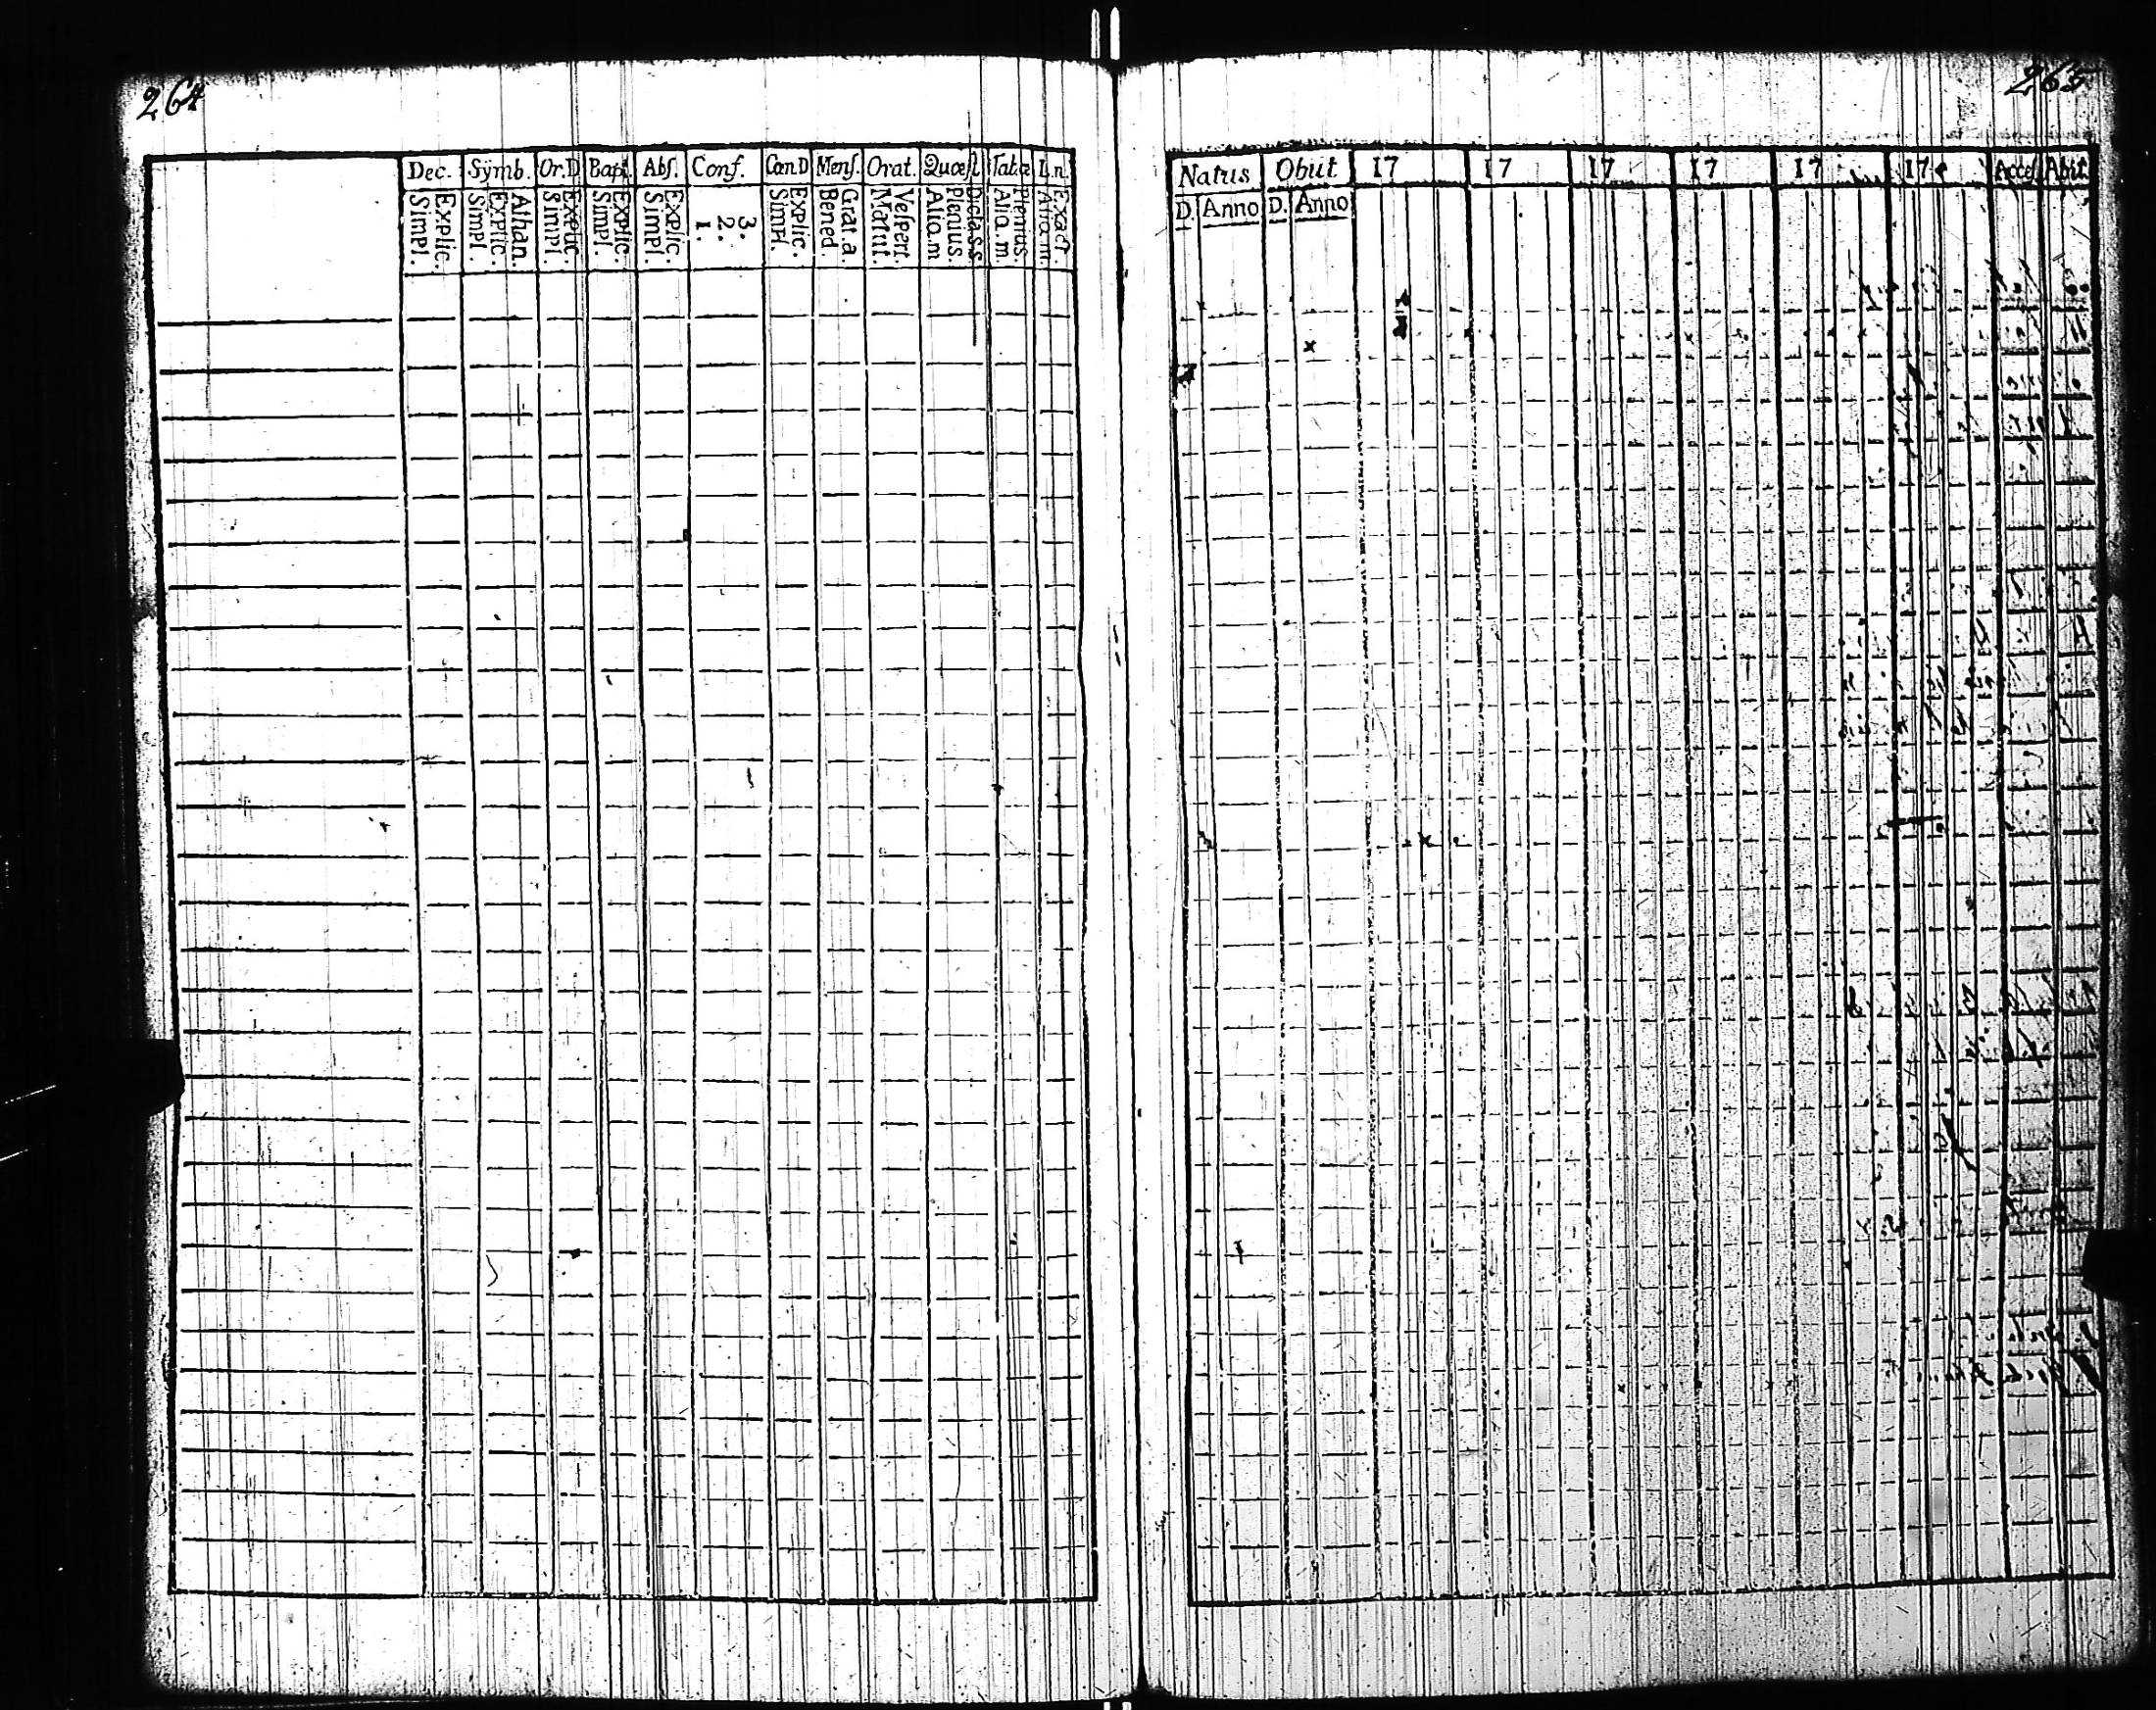 264
Dec. Sÿmb. Or.D Bapt. Abſ. Conf. Cœn.D Menſ. Orat. Quæſt. Tab.œ L.n.
Simpl. Explic. Simpl. Explic. Athan. Simpl. Explic. Simpl. Explic. Simpl. Explic. 1. 2. 3. Simpl. Explic. Bened. Grat.a. Matut. Veſpert. Alio.m. Plenius. Dicta.S.S. Alio.m. Plenius. Exact.
265
Natus Obiit 17 17 17 17 17 17 Acceſ. Abiit
D. Anno D. Anno